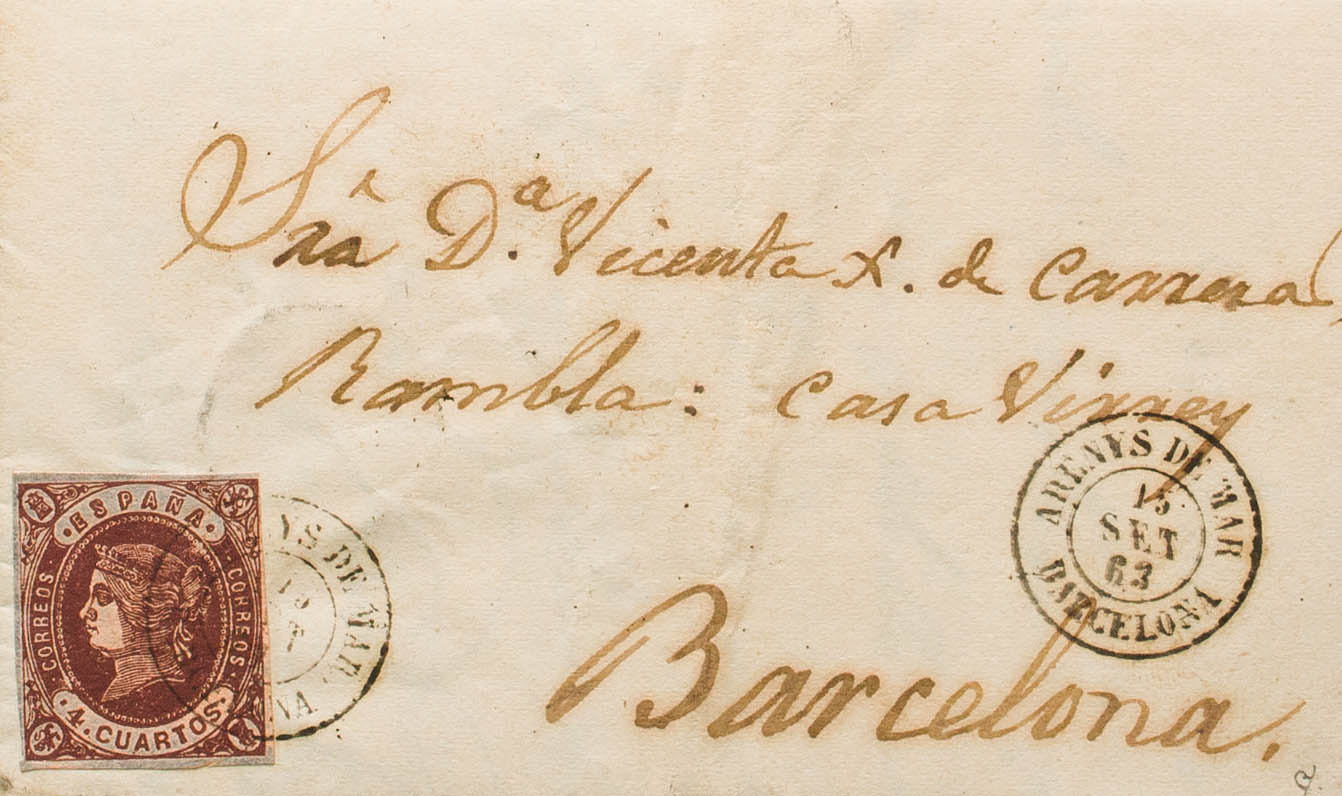 Sra Dª Vicenta X. de Carrera
Rambla: Casa Virrey
Barcelona.
ARENYS DE MAR
15
SET
63
BARCELONA
ESPAÑA
CORREOS
CORREOS
4 CUARTOS
YS DE MAR